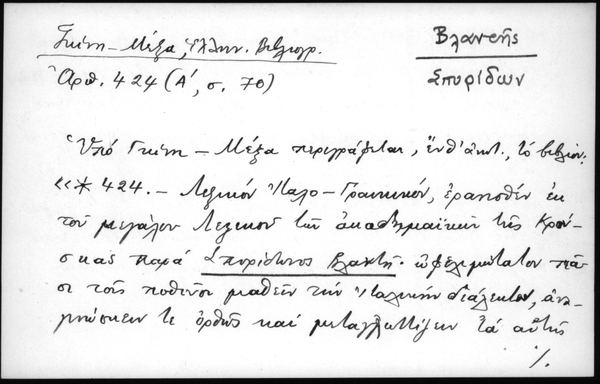 Γκίνη – Μέξα, Ἑλλην. Βιβλιογρ.
Ἀριθ. 424 (Α΄, σ. 70)
Βλαντῆς
Σπυρίδων
Ὑπό Γκίνη – Μέξα περιγράφεται, ἔνθ' ἀνωτ., τό βιβλίον:
«* 424. – Λεξικόν Ἰταλο-Γραικικόν, ἐρανισθέν ἐκ
τοῦ μεγάλου Λεξικοῦ τῶν ἀκαδημαϊκῶν τῆς Κρού-
σκας παρά Σπυρίδωνος Βλαντῆ. ὠφελιμώτατον πᾶ-
σι τοῖς ποθοῦσι μαθεῖν τήν Ἰταλικήν διάλεκτον, ἀνα-
γινώσκειν τε ὀρθῶς καί μεταγλωττίζειν τά αὐτῆς
./.